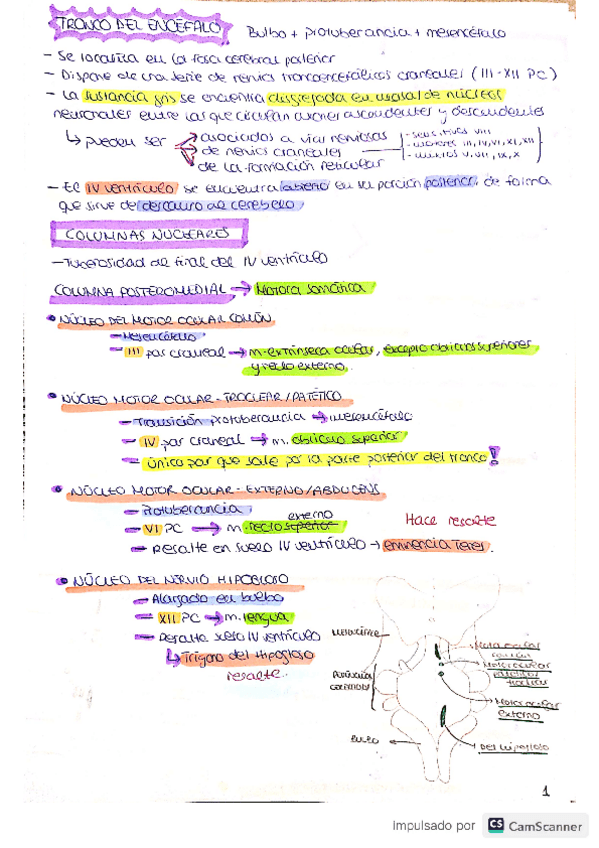 TRONCO DEL ENCÉFALO Bulbo + protuberancia + mesencéfalo
- Se localiza en la fosa cerebral posterior
- Dispone de una serie de nervios troncoencefálicos craneales (III-XII PC)
- La sustancia gris se encuentra disgregada en masas de núcleos
neuronales entre las que circulan axones ascendentes y descendentes
↳ pueden ser → asociados a vías nerviosas
→ de nervios craneales
→ de la formación reticular
- sensitivos VIII
- motores III, IV, VI, XI, XII
- mixtos V, VII, IX, X
- El IV ventrículo se encuentra abierto en su porción posterior, de forma
que sirve de descanso al cerebelo
COLUMNAS NUCLEARES
- Tuberosidad al final del IV ventrículo
COLUMNA POSTEROMEDIAL → Motora somática
• NÚCLEO DEL MOTOR OCULAR COMÚN
- Mesencéfalo
- III par craneal → m. extrínseca ocular, excepto oblicuos superiores
y recto externo.
• NÚCLEO MOTOR OCULAR - TROCLEAR / PATÉTICO
- Transición protuberancia → mesencéfalo
- IV par craneal → m. oblicuo superior
- único par que sale por la parte posterior del tronco!
• NÚCLEO MOTOR OCULAR - EXTERNO / ABDUCENS
- Protuberancia
externo
- VI PC → m. recto superior
Hace resalte
- Resalte en suelo IV ventrículo → eminencia Teres.
• NÚCLEO DEL NERVIO HIPOGLOSO
- Alargado en bulbo
- XII PC → m. lengua
- Resalte suelo IV ventrículo
↳ Trígono del Hipogloso
resalte.
Motor ocular
común
Motor ocular
Motor ocular
externo
Bulbo
Del hipogloso
1
Impulsado por CS CamScanner